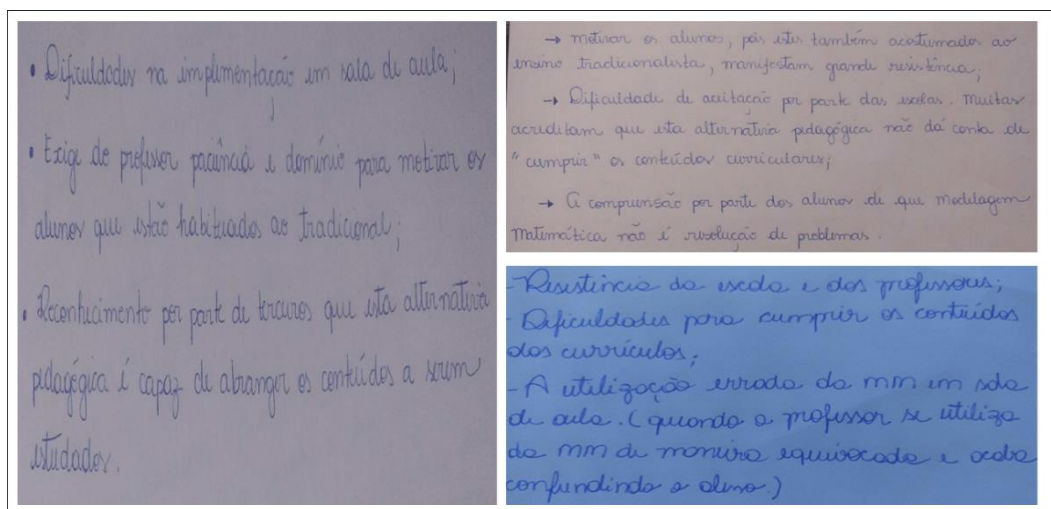 • Dificuldades na implementação em sala de aula;
• Exige do professor paciência e domínio para motivar os
alunos que estão habituados ao tradicional;
• Reconhecimento por parte de terceiros que esta alternativa
pedagógica é capaz de abranger os conteúdos a serem
estudados.
→ motivar os alunos, pois estes também acostumados ao
ensino tradicionalista, manifestam grande resistência;
→ Dificuldade de aceitação por parte das escolas. Muitas
acreditam que esta alternativa pedagógica não dá conta de
"cumprir" os conteúdos curriculares;
→ A compreensão por parte dos alunos de que modelagem
matemática não é resolução de problemas.
- Resistência da escola e dos professores;
- Dificuldades para cumprir os conteúdos
dos currículos;
- A utilização errada da mm em sala
de aula. (quando o professor se utiliza
da mm de maneira equivocada e acaba
confundindo o aluno.)